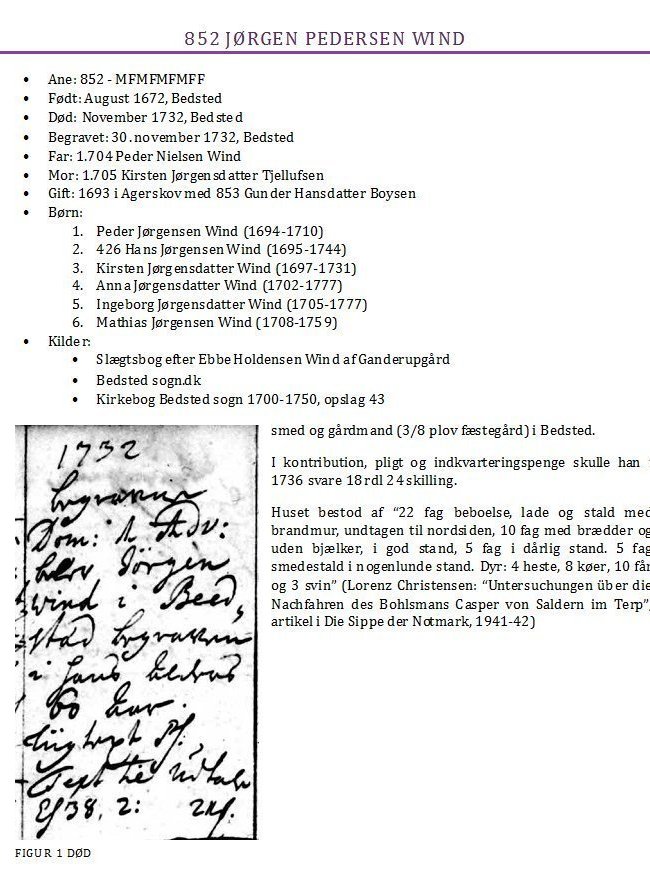 852 JØRGEN PEDERSEN WIND
• Ane: 852 - MFMFMFMFF
• Født: August 1672, Bedsted
• Død: November 1732, Bedsted
• Begravet: 30. november 1732, Bedsted
• Far: 1.704 Peder Nielsen Wind
• Mor: 1.705 Kirsten Jørgensdatter Tjellufsen
• Gift: 1693 i Agerskov med 853 Gunder Hansdatter Boysen
• Børn:
1. Peder Jørgensen Wind (1694-1710)
2. 426 Hans Jørgensen Wind (1695-1744)
3. Kirsten Jørgensdatter Wind (1697-1731)
4. Anna Jørgensdatter Wind (1702-1777)
5. Ingeborg Jørgensdatter Wind (1705-1777)
6. Mathias Jørgensen Wind (1708-1759)
• Kilder:
• Slægtsbog efter Ebbe Holdensen Wind af Ganderupgård
• Bedsted sogn.dk
• Kirkebog Bedsted sogn 1700-1750, opslag 43
smed og gårdmand (3/8 plov fæstegård) i Bedsted.
I kontribution, pligt og indkvarteringspenge skulle han i
1736 svare 18 rdl 24 skilling.
Huset bestod af “22 fag beboelse, lade og stald med
brandmur, undtagen til nordsiden, 10 fag med brædder og
uden bjælker, i god stand, 5 fag i dårlig stand. 5 fag
smedestald i nogenlunde stand. Dyr: 4 heste, 8 køer, 10 får
og 3 svin” (Lorenz Christensen: “Untersuchungen über die
Nachfahren des Bohlsmans Casper von Saldern im Terp”,
artikel i Die Sippe der Notmark, 1941-42)
1732
begraven
Dom: 1 Adv:
blev Jörgen
Wind i Beed,
stad begraven
i hans alders
60 aar.
Text til
Es 38, 2:
FIGUR 1 DØD